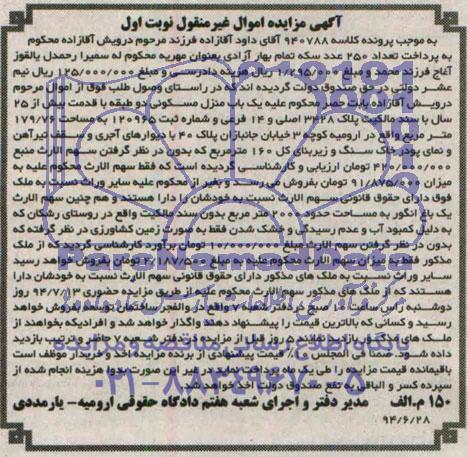 آگهی مزایده اموال غیرمنقول نوبت اول
به موجب پرونده کلاسه ۹۴۰۷۸۸ آقای داود آقازاده فرزند مرحوم درویش آقازاده محکوم
به پرداخت تعداد ۲۵۰ عدد سکه تمام بهار آزادی بعنوان مهریه محکوم له سمیرا رحمدل یالقوز
آغاج فرزند محمد و مبلغ ۱/۲۹۵/۰۰۰ ریال هزینه دادرسی و مبلغ ۱۲۵/۰۰۰/۰۰۰ ریال نیم
عشر دولتی در حق صندوق دولت گردیده اند که در راستای وصول طلب فوق از اموال مرحوم
درویش آقازاده بابت حصر محکوم علیه یک باب منزل مسکونی دو طبقه با قدمت بیش از ۲۵
سال با سند مالکیت پلاک ۳۳۰۸ اصلی و ۱۴ فرعی و شماره ثبت ۱۲۰۹۶۵ به مساحت ۱۷۹/۷۶
متر مربع واقع در ارومیه کوچه ۳ خیابان جانبازان پلاک ۴۰ با دیوارهای آجری و سقف تیرآهن
و نمای پودر خاک سنگ و زیربنای کل ۱۶۰ مترمربع که بدون در نظر گرفتن سهم الارث منبع
ریال ارزیابی و کارشناسی گردیده است که فقط سهم الارث محکوم علیه به
میزان ۹۱/۸۷۵/۰۰۰ تومان بفروش می رسد و بغیر از محکوم علیه سایر وراث نسبت به ملک
فوق دارای حقوق قانونی سهم الارث نسبت به خودشان را دارا هستند و هم چنین سهم الارث
یک باغ انگور به مساحت حدود مترمربع بدون سند مالکیت واقع در روستای رشکان که
به دلیل کمبود آب و عدم رسیدگی و خشک شدن فقط به صورت زمین کشاورزی در نظر گرفته که
بدون در نظر گرفتن سهم الارث مبلغ تومان برآورد کارشناسی گردید که از ملک
مذکور فقط به میزان سهم الارث محکوم علیه به مبلغ تومان بفروش خواهد رسید
سایر وراث نسبت به ملک های مذکور دارای حقوق قانونی سهم الارث نسبت به خودشان دارا
هستند که املاک مذکور سهم الارث محکوم علیه از طریق مزایده حضوری ۹۴/۷/۱۳ روز
دوشنبه راس ساعت صبح در دفتر شعبه واقع در والفجر ساختمان توسعه بفروش خواهد
رسید و کسانی که بالاترین قیمت را پیشنهاد دهند واگذار خواهد شد و افرادیکه بخواهند از
ملک های مذکور بازدید نمایند ۵ روز قبل از مزایده به دفتر شعبه مراجعه حاضر و ترتیب بازدید
داده شود. ضمناً فی المجلس ۱۰٪ قیمت پیشنهادی از برنده مزایده اخذ و خریدار موظف است
باقیمانده قیمت مزایده را طی یک ماه پرداخت نمایند در غیر این صورت بدوا هزینه انجام شده از
سپرده کسر و الباقی به نفع صندوق دولت اخذ خواهد شد.
۱۵۰ م.الف مدیر دفتر و اجرای شعبه هفتم دادگاه حقوقی ارومیه - یارمددی
۹۴/۶/۲۸
ParsNamadData
پایگاه اطلاع رسانی مناقصه و مزایده
۰۲۱-۸۸۳۴۹۶۷۰-۵